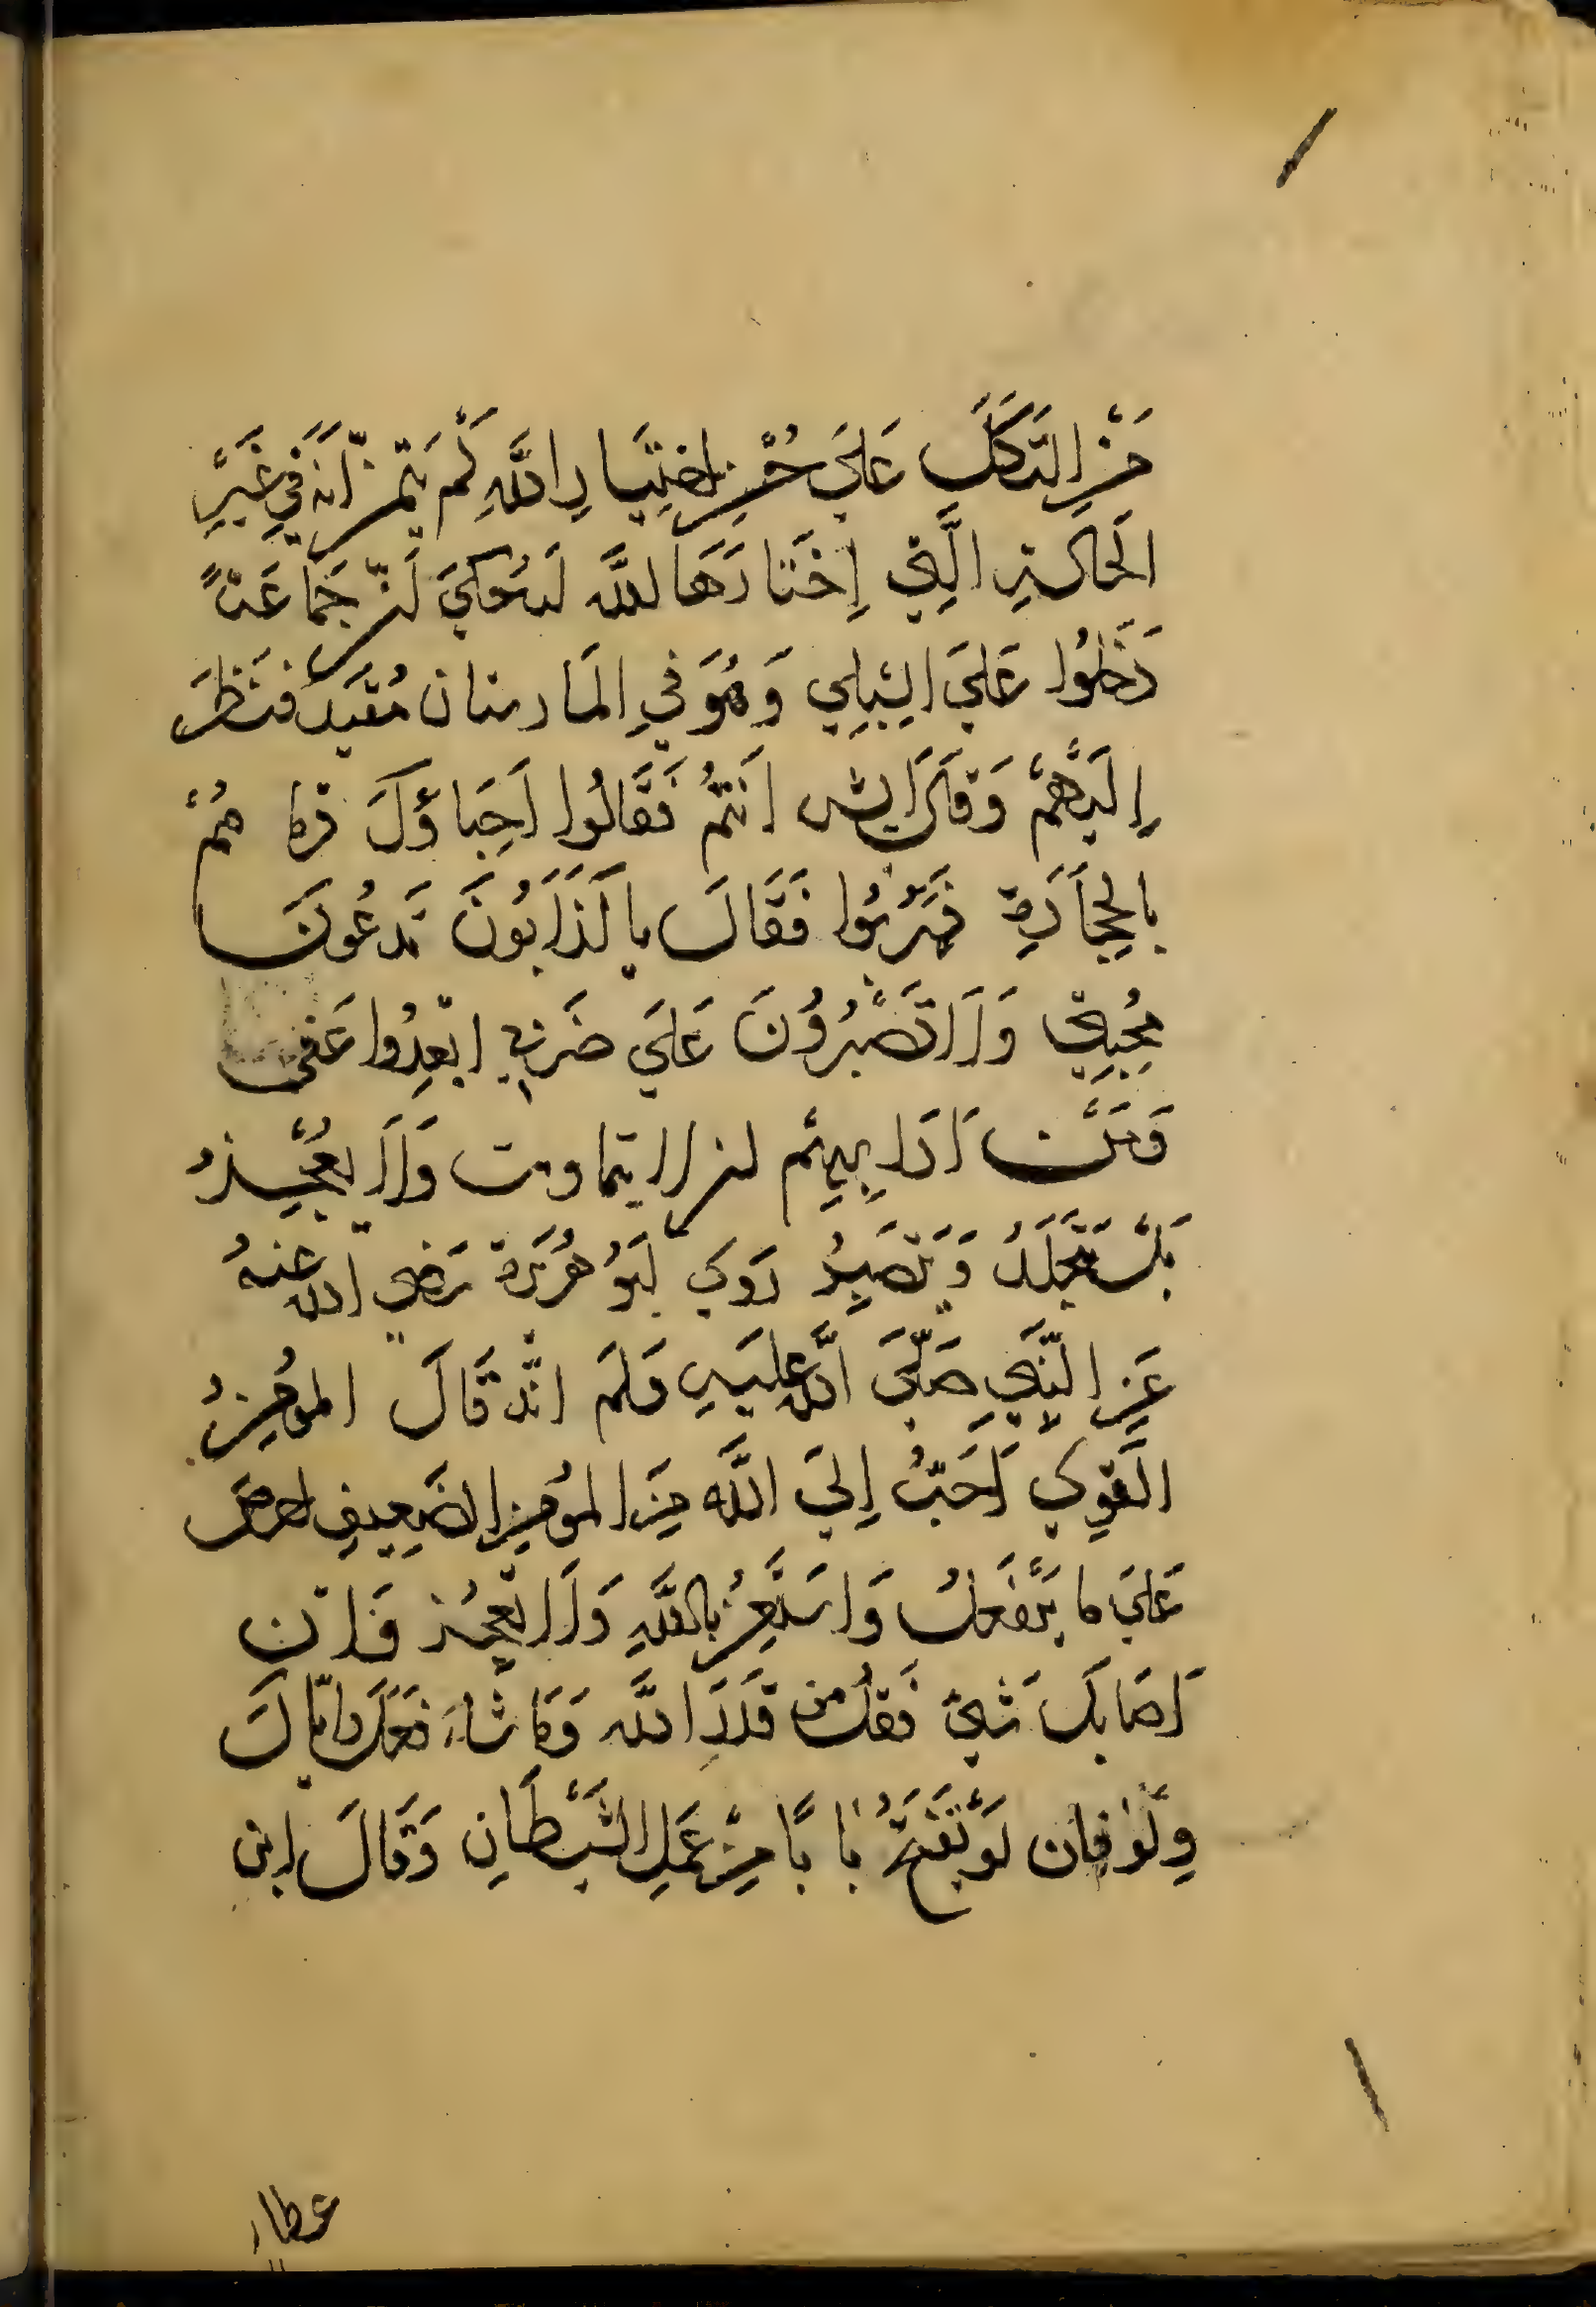 مَنْ اِلتَكَلَ عَلَيَ حُسْنِ اِختِيَارِ اللَّهِ لَمْ يَتَمَنّ اَنَهُ فِي غَيْرِ
الحَالَةِ الَّتِي اِخْتَارَهَا اللَّه لَهُ حكيَ اَنّ جَمَاعَةً
دَخَلُوا عَلَيَ الشِبلِي وَهُوَ فِي المَارستان مُقَيَد فَنَظَرَ
اِلَيْهِمْ وَقَالَ اَيش اَنتُمْ فَقَالُوا اَحِبَاؤكَ فرماهُمْ
بالحِجَارَةِ فهَرَبُوا فَقَالَ يا كَذَابُونَ تَدعُونَ
مُحِبَتِي وَلَا تَصْبِرُونَ عَلَي ضَربِي ابعِدُوا عَني
وَمَنْ اَدَابِهِمْ ان لا يتماوت وَلَا يَعْجِزُ
بَلْ يَتَجَلَدُ وَيَتَصَبِرُ رَوَي اَبَوُ هُرَيرَة رَضِي اللَّه عَنهُ
عَنِ النَّبِي صَلّيَ اللَّه عَليَهِ وَلَم انَّهُ قَالَ المؤمِنُ
القَوِي اَحَبُّ اِليَ اللَّه مِنَ المؤمِنِ الضَعِيفِ احرص
عَليَ ما يَنْفَعكُ وَاستَعِنْ بِاللَّهِ وَلَا تَعجِز فَاِن
اَصَابَكَ شَيْ فَقُلْ من قَدَرِ اللَّه وَمَا شَاءَ فَعَلَ وايّاكَ
وِلَوْ فان لَوْ تَفتَحُ بَابًا مِنْ عَمَلِ الشَيْطَانِ وَقَالَ ابن
عطاء